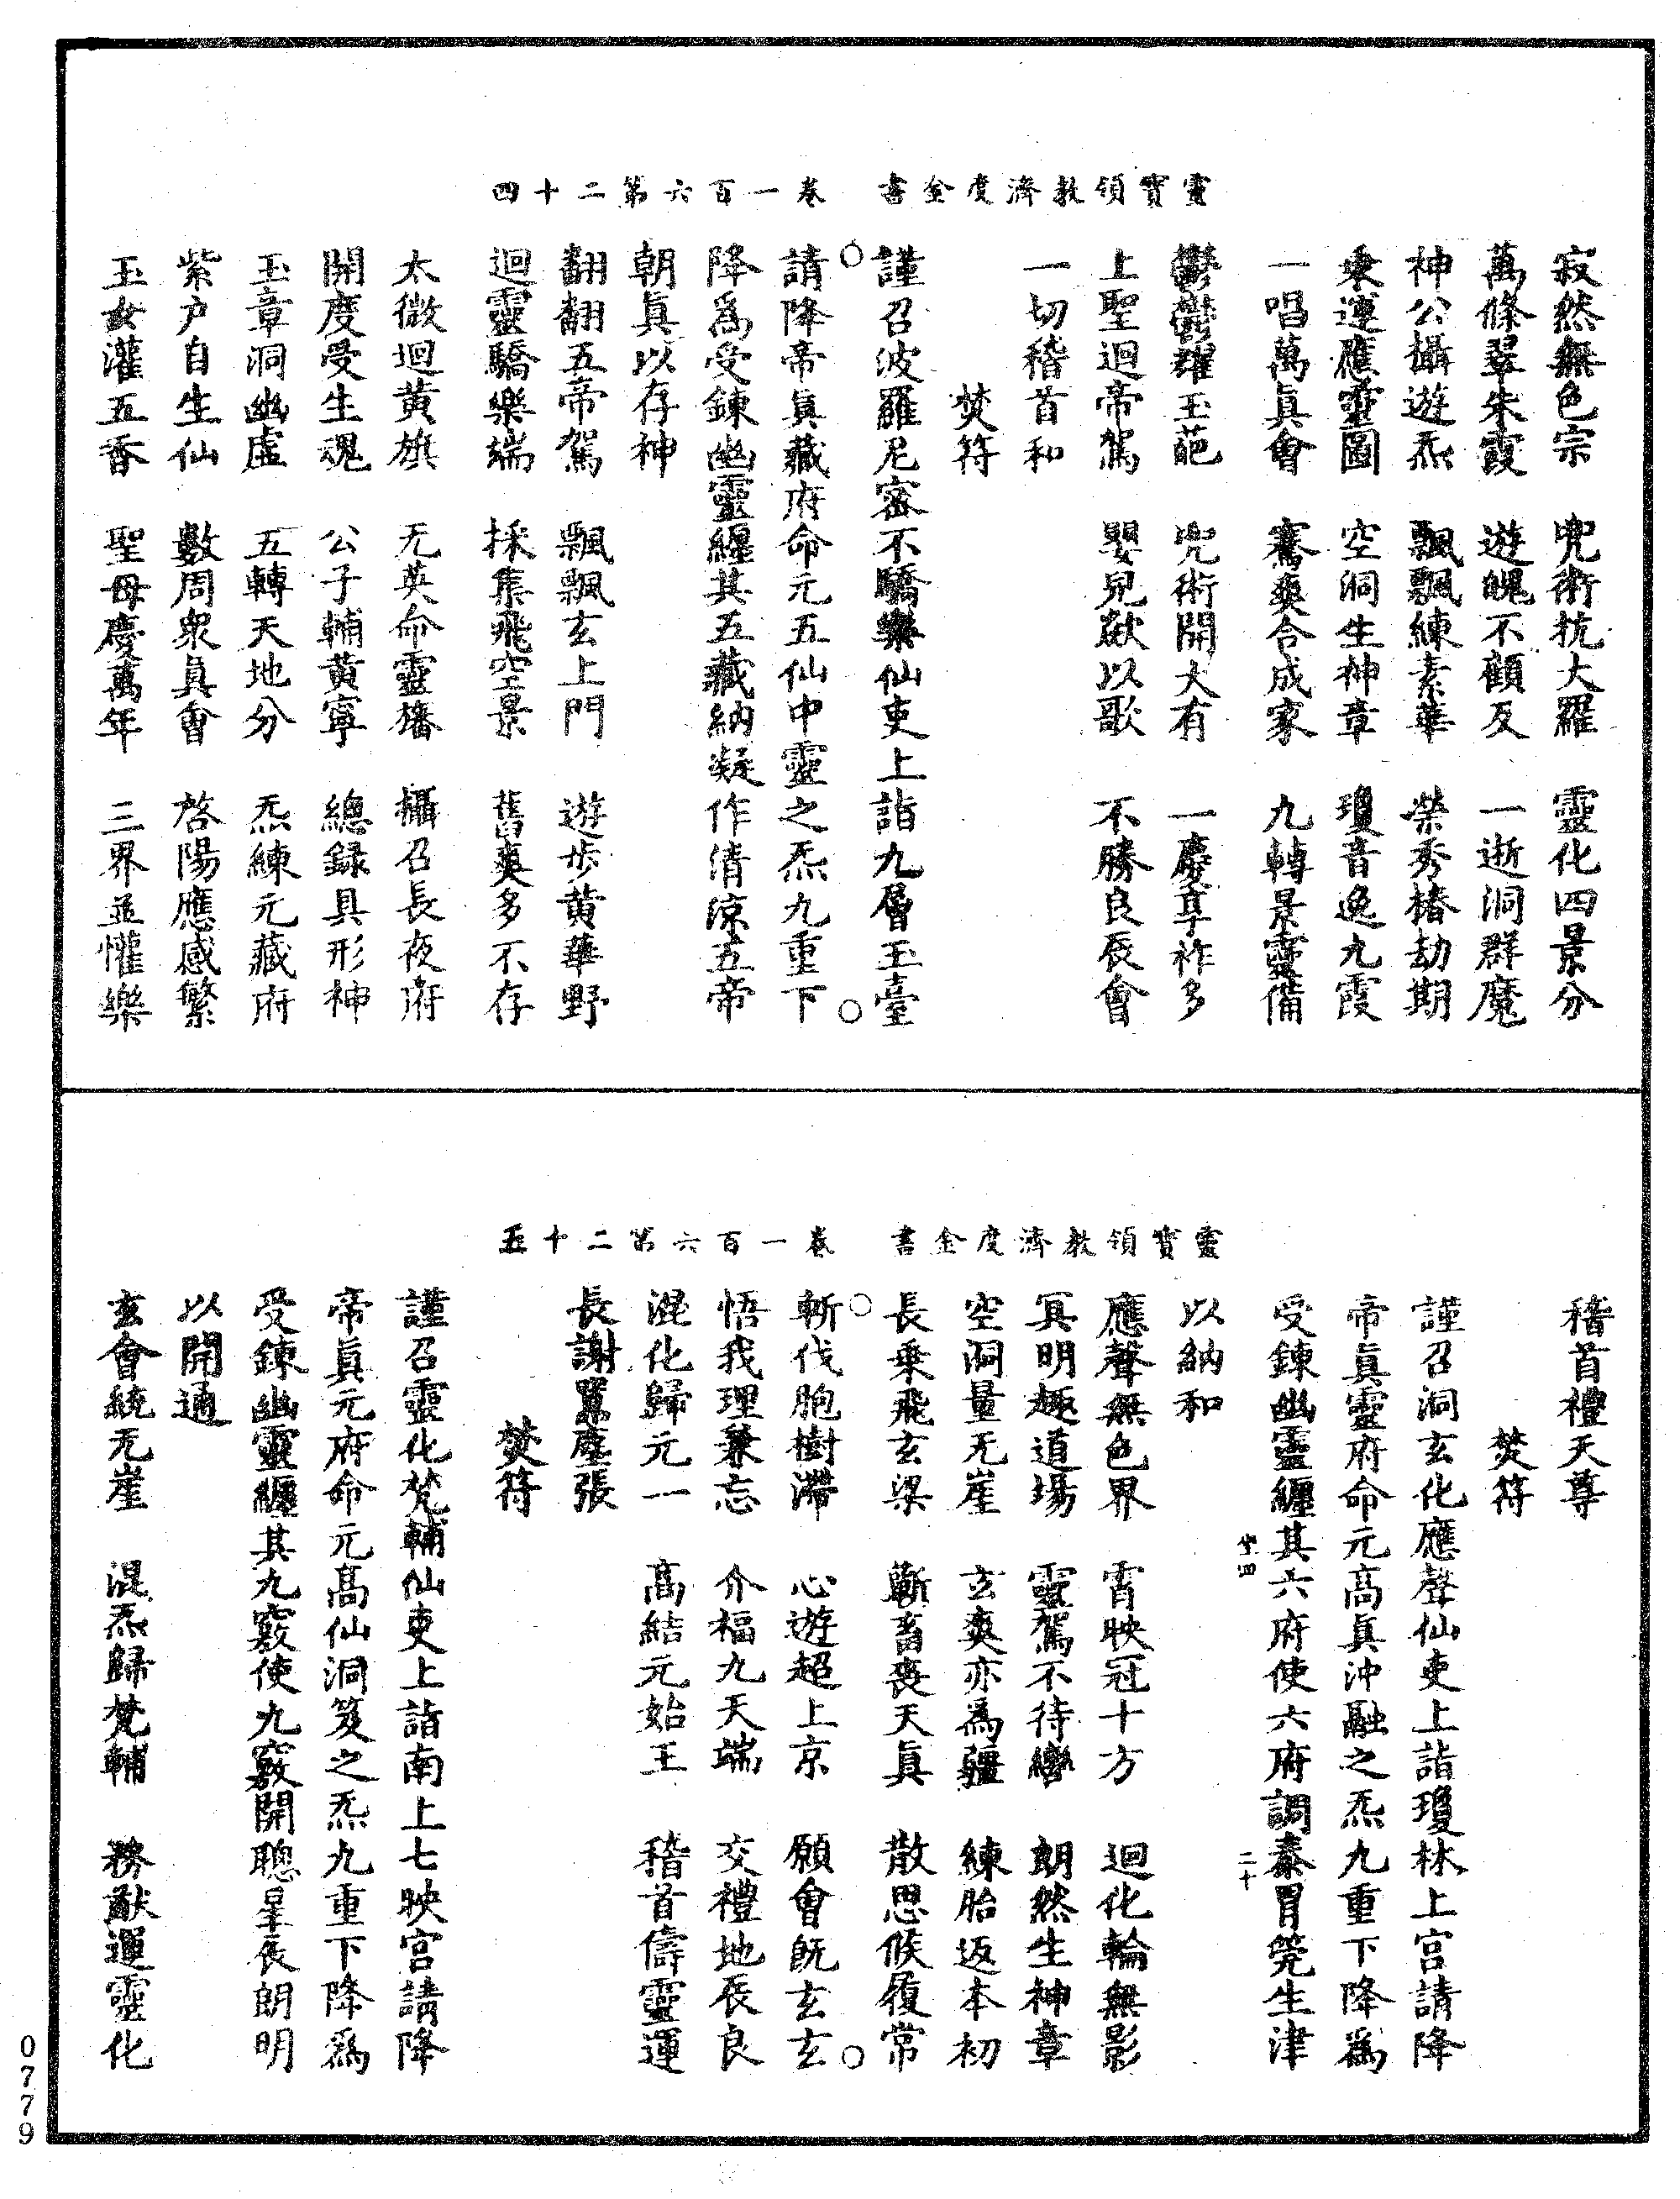 靈寶領教濟度金書　卷一百六第二十四
寂然無色宗　兜術抗大羅　靈化四景分
萬條翠朱霞　遊魄不顧反　一逝洞群魔
神公攝遊炁　飄飄練素華　榮秀椿劫期
乘運應靈圖　空洞生神章　瓊音逸九霞
一唱萬真會　騫爽合成家　九轉景靈備
鬱鬱耀玉葩　兜術開大有　一慶享祚多
上聖迴帝駕　嬰兒歘以歌　不勝良辰會
一切稽首和
焚符
謹召波羅尼蜜不驕樂仙吏上詣九層玉臺
請降帝眞藏府命元五仙中靈之炁九重下
降爲受鍊幽靈纏其五藏納凝作清涼五帝
朝眞以存神
翻翻五帝駕　飄飄玄上門　遊步黃華野
迴靈驕樂端　採集飛空景　舊爽多不存
太微迴黃旗　无英命靈旛　攝召長夜府
開度受生魂　公子輔黃寧　總錄具形神
玉章洞幽虛　五轉天地分　炁練元藏府
紫户自生仙　數周衆眞會　啓陽應感繁
玉女灌五香　聖母慶萬年　三界並懽樂
靈寶領教濟度金書　卷一百六第二十五
稽首禮天尊
焚符
謹召洞玄化應聲仙吏上詣瓊林上宮請降
帝眞靈府命元高眞沖融之炁九重下降爲
受鍊幽靈纏其六府使六府調泰胃筦生津
坐四　二十
以納和
應聲無色界　霄映冠十方　迴化輪無影
冥明趣道場　靈駕不待轡　朗然生神章
空洞量无崖　玄爽亦爲疆　練胎返本初
長乘飛玄梁　蘄畜喪天眞　散思候履常
斬伐胞樹滯　心遊超上京　願會旣玄玄
悟我理兼忘　介福九天端　交禮地辰良
混化歸元一　高結元始王　稽首儔靈運
長謝囂塵張
焚符
謹召靈化梵輔仙吏上詣南上七映宮請降
帝眞元府命元元高仙洞笈之炁九重下降爲
受鍊幽靈纏其九竅使九竅開聰星辰朗明
以開通
玄會統无崖　混炁歸梵輔　務猷運靈化
0779